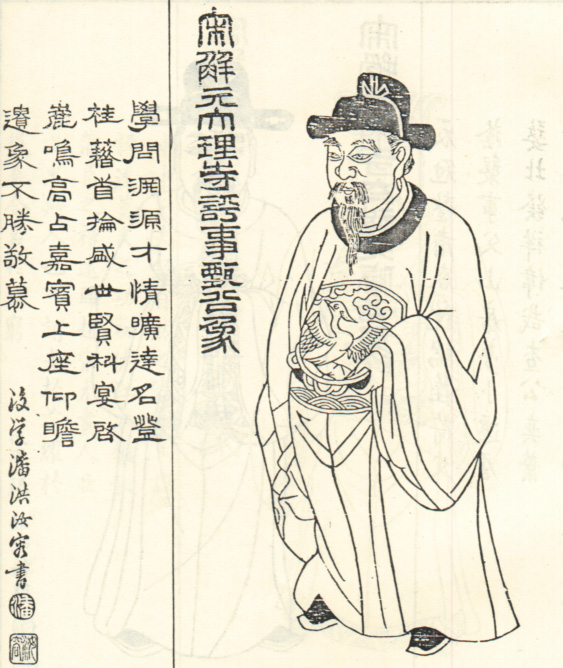 宋解元大理寺評事甄公象
學問淵源才情曠達名登
桂藉首掄盛世賢科宴啟
鹿鳴高占嘉賓上座仰瞻
遺象不勝敬慕
後学潘洪汝容書
潘